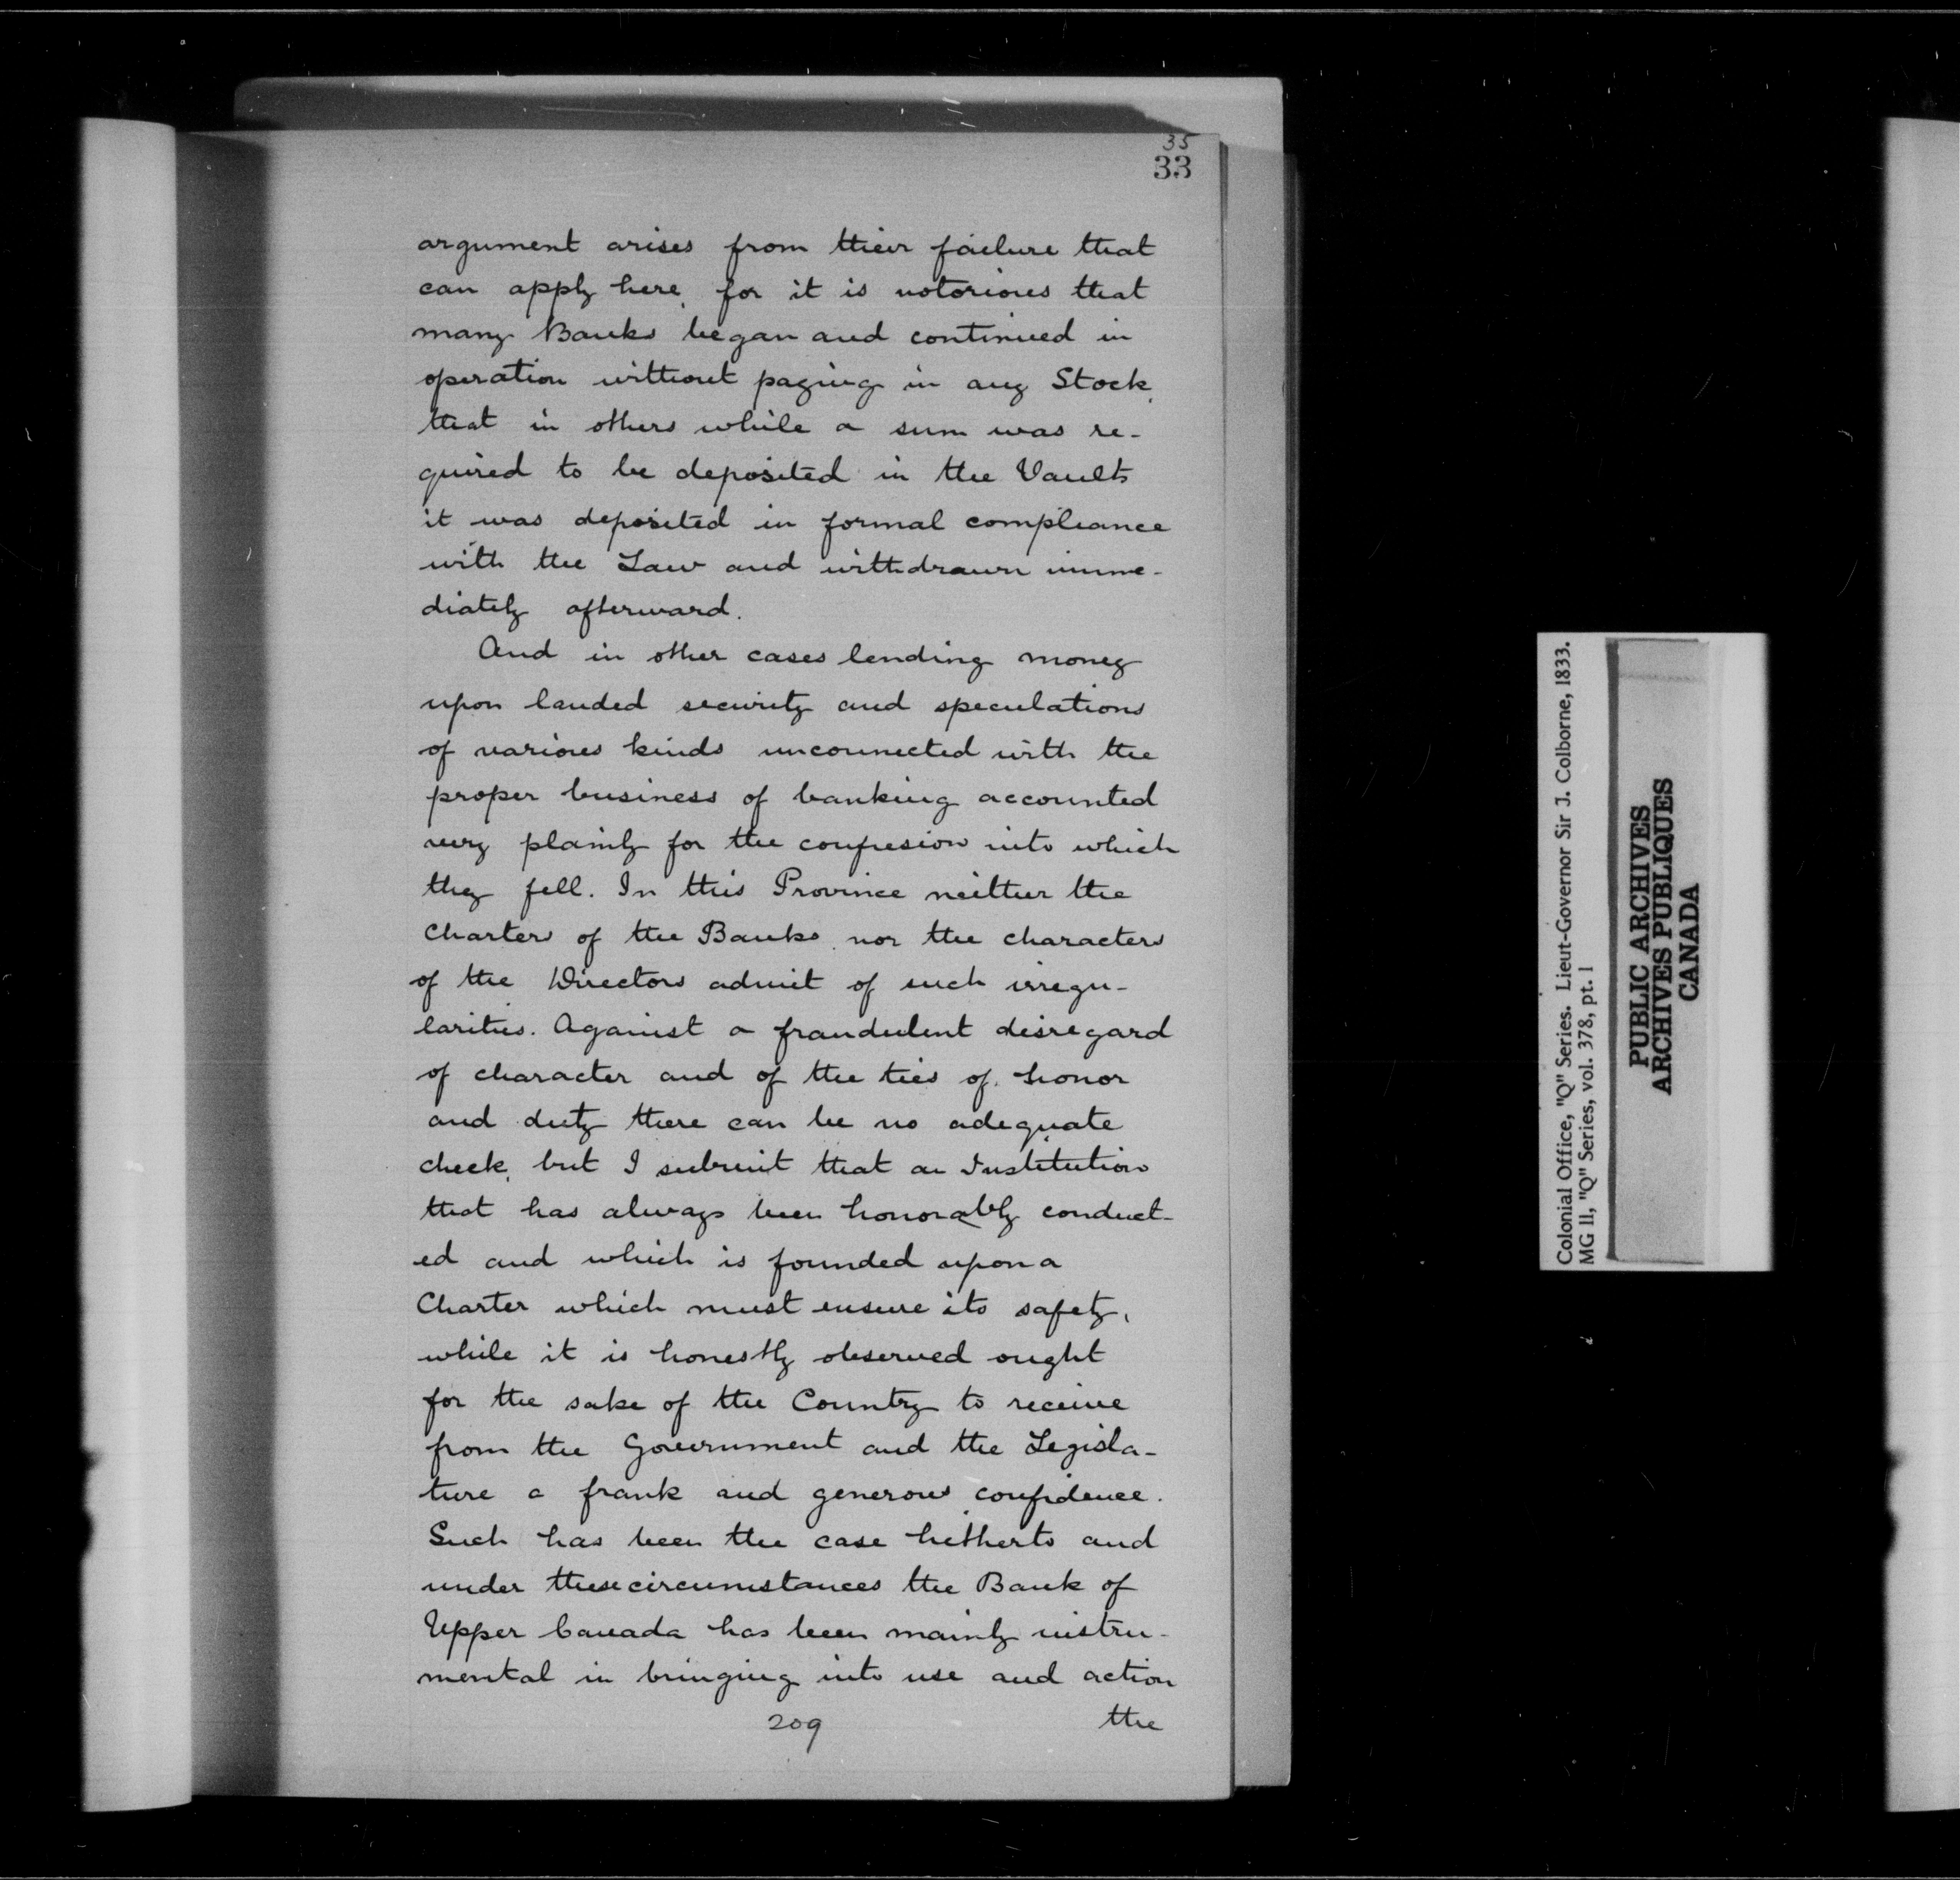 35
33
argument arises from their failure that
can apply here, for it is notorious that
many Banks began and continued in
operation without paying in any Stock,
that in others while a sum was re-
quired to be deposited in the Vaults
it was deposited in formal compliance
with the Law and withdrawn imme-
diately afterward.
And in other cases lending money
upon landed security and speculations
of various kinds unconnected with the
proper business of banking accounted
very plainly for the confusion into which
they fell. In this Province neither the
Charters of the Banks, nor the characters
of the Directors admit of such irregu-
larities. Against a fraudulent disregard
of character and of the ties of honor
and duty there can be no adequate
check, but I submit that an Institution
that has always been honorably conduct-
ed and which is founded upon a
Charter which must ensure its safety,
while it is honestly observed ought
for the sake of the Country to receive
from the Government and the Legisla-
ture a frank and generous confidence.
Such has been the case hitherto and
under these circumstances the Bank of
Upper Canada has been mainly instru-
mental in bringing into use and action
209
the
Colonial Office, "Q" Series. Lieut-Governor Sir J. Colborne, 1833.
MG 11, "Q" Series, vol. 378, pt. 1
PUBLIC ARCHIVES
ARCHIVES PUBLIQUES
CANADA